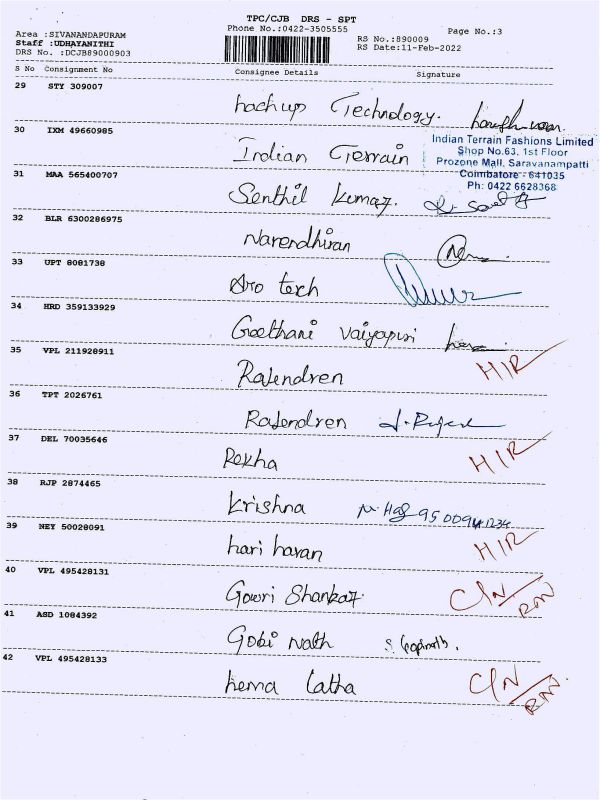 TPC/CJB DRS - SPT
Phone No.:0422-3505555
Page No.:3
Area :SIVANANDAPURAM
Staff :UDHAYANITHI
DRS No. :DCJB89000903
RS No.:890009
RS Date:11-Feb-2022
S No Consignment No Consignee Details Signature
29 STY 309007 hachup Technology.
30 IXM 49660985 Indian Terrain
Indian Terrain Fashions Limited
Shop No.63, 1st Floor
Prozone Mall, Saravanampatti
Coimbatore - 641035
Ph: 0422 6628368
31 MAA 565400707 Senthil Kumar.
32 BLR 6300286975 Narendhiran
33 UPT 8081738 Aro tech
34 HRD 359133929 Geethani Vaiyapuri
35 VPL 211928911 Rajendren H/R
36 TPT 2026761 Rajendren
37 DEL 70035646 Rekha H/R
38 RJP 2874465 Krishna 9500941234
39 NEY 50028091 hari haran H/R
40 VPL 495428131 Gowri Shankar. C/N RMV
41 ASD 1084392 Gobi nath S. Gopinath.
42 VPL 495428133 hema latha C/N RMV.